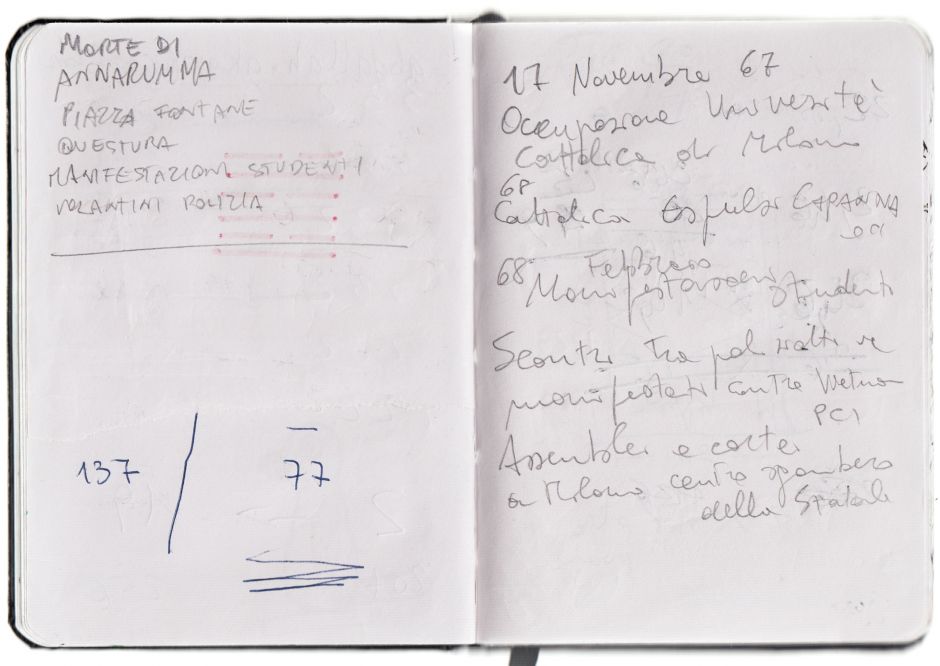 MORTE DI
ANNARUMMA
PIAZZA FONTANE
QUESTURA
MANIFESTAZIONI STUDENTI
VOLANTINI POLIZIA
137
77
17 Novembre 67
Occupazione Università
Cattolica di Milano
68
Cattolica Espulsi CAPANNA
68 Febbraio
Manifestazioni studenti
Scontri tra poliziotti e
manifestanti contro Vietnam
PCI
Assemblee e cortei
a Milano centro sgombero
della Statale